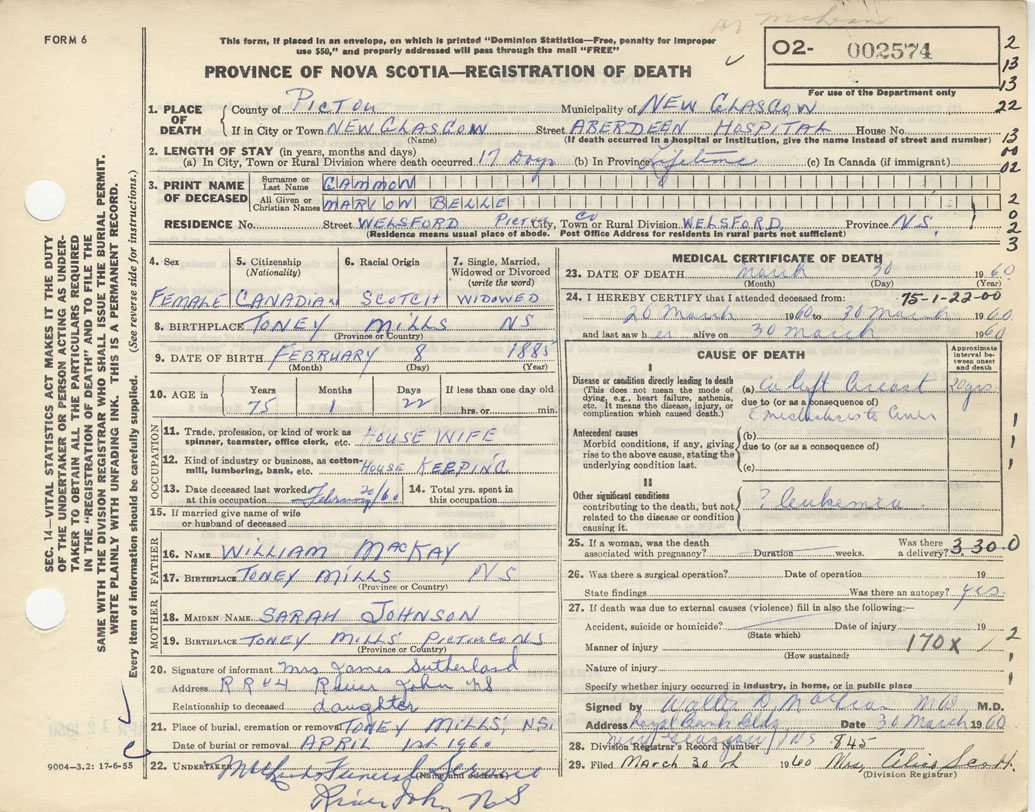 Dr McLean
FORM 6
This form, if placed in an envelope, on which is printed "Dominion Statistics—Free, penalty for improper
use $50," and properly addressed will pass through the mail "FREE"
PROVINCE OF NOVA SCOTIA—REGISTRATION OF DEATH
02- 002574
For use of the Department only
2
13
13
22
13
00
02
2
0
2
3
1. PLACE OF DEATH
County of PICTOU Municipality of NEW GLASGOW
If in City or Town NEW GLASGOW Street ABERDEEN HOSPITAL House No.
(Name) (If death occurred in a hospital or institution, give the name instead of street and number)
2. LENGTH OF STAY (in years, months and days)
(a) In City, Town or Rural Division where death occurred 17 Days (b) In Province Lifetime (c) In Canada (if immigrant)
3. PRINT NAME OF DECEASED
Surname or Last Name GAMMON
All Given or Christian Names MARION BELLE
RESIDENCE No. Street WELSFORD PICTOU CO City, Town or Rural Division WELSFORD Province NS.
(Residence means usual place of abode. Post Office Address for residents in rural parts not sufficient)
4. Sex 5. Citizenship (Nationality) 6. Racial Origin 7. Single, Married, Widowed or Divorced (write the word)
FEMALE CANADIAN SCOTCH WIDOWED
8. BIRTHPLACE TONEY MILLS NS
(Province or Country)
9. DATE OF BIRTH FEBRUARY 8 1885
(Month) (Day) (Year)
10. AGE in Years Months Days If less than one day old
75 1 22 hrs. or min.
OCCUPATION
11. Trade, profession, or kind of work as spinner, teamster, office clerk, etc. HOUSE WIFE
12. Kind of industry or business, as cotton-mill, lumbering, bank, etc. HOUSE KEEPING
13. Date deceased last worked at this occupation February /60 14. Total yrs. spent in this occupation
15. If married give name of wife or husband of deceased
FATHER
16. NAME WILLIAM MACKAY
17. BIRTHPLACE TONEY MILLS NS
(Province or Country)
MOTHER
18. MAIDEN NAME SARAH JOHNSON
19. BIRTHPLACE TONEY MILLS PICTOU CO NS
(Province or Country)
20. Signature of informant Mrs James Sutherland
Address RR#4 River John NS
Relationship to deceased daughter
21. Place of burial, cremation or removal TONEY MILLS, NS.
Date of burial or removal APRIL 1st 1960
22. UNDERTAKER Funeral Service
(Name and address)
River John NS
MEDICAL CERTIFICATE OF DEATH
23. DATE OF DEATH March 30 1960
(Month) (Day) (Year)
24. I HEREBY CERTIFY that I attended deceased from: 75-1-22-00
20 March 1960 to 30 March 1960
and last saw her alive on 30 March 1960
CAUSE OF DEATH
Approximate interval between onset and death
I
Disease or condition directly leading to death
(This does not mean the mode of dying, e.g., heart failure, asthenia, etc. It means the disease, injury, or complication which caused death.)
(a) Ca left breast 20 yrs.
due to (or as a consequence of)
Antecedent causes
Morbid conditions, if any, giving rise to the above cause, stating the underlying condition last.
(b)
due to (or as a consequence of)
(c)
II
Other significant conditions
contributing to the death, but not related to the disease or condition causing it.
? leukemia
1
1
1
25. If a woman, was the death associated with pregnancy? Duration weeks. Was there a delivery? 3 3 0 0
26. Was there a surgical operation? Date of operation 19
State findings Was there an autopsy? yes
27. If death was due to external causes (violence) fill in also the following:
Accident, suicide or homicide? Date of injury 19
(State which)
Manner of injury 170X
(How sustained)
Nature of injury
2
1
1
Specify whether injury occurred in industry, in home, or in public place
Signed by Walter D. MacLean M.D. M.D.
Address Royal Bank Bldg Date 30 March 1960
New Glasgow NS
28. Division Registrar's Record Number 845
29. Filed March 30th 1960 Mrs. Alice Scott.
(Division Registrar)
SEC. 14—VITAL STATISTICS ACT MAKES IT THE DUTY
OF THE UNDERTAKER OR PERSON ACTING AS UNDER-
TAKER TO OBTAIN ALL THE PARTICULARS REQUIRED
IN THE "REGISTRATION OF DEATH" AND TO FILE THE
SAME WITH THE DIVISION REGISTRAR WHO SHALL ISSUE THE BURIAL PERMIT.
WRITE PLAINLY WITH UNFADING INK. THIS IS A PERMANENT RECORD.
Every item of information should be carefully supplied. (See reverse side for instructions.)
9004—3.2: 17-6-55